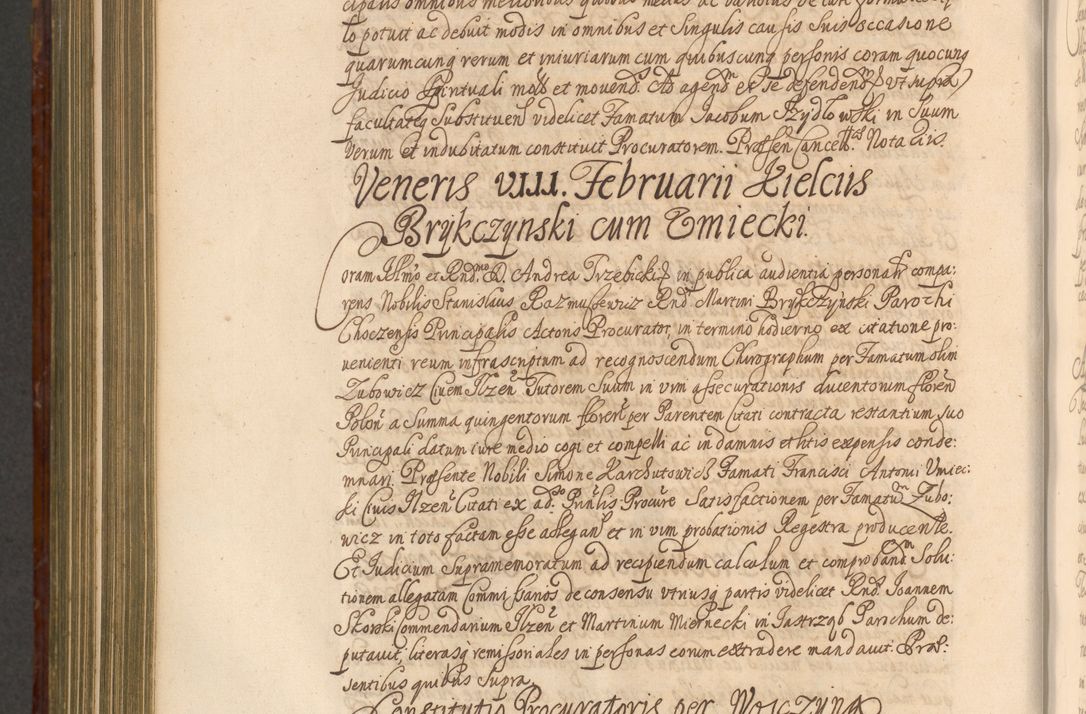 cipalis omnibus melioribus quibus melius ac validius de iure
to potuit ac debuit modis in omnibus et Singulis causis Suis occasione
quarumcunq rerum et iniuriarum cum quibuscunq personis coram quocunq
Judicio Spirituali mot et movend. Ad agend et se defendend ut supra
facultateq Substituen videlicet Famatum Jacobum Szydlowski in Suum
Verum et indubitatum constituit Procuratorem. Præsen Cancell Notariis.
Veneris VIII. Februarii Kielciis
Brykczynski cum Umiecki.
Coram Illmo et Rndmo D. Andrea Trzebicki in publica audientia personalr compa:
rens Nobilis Stanislaus Razmussewicz Rnd Martini Brykczynski Parochi
Choczensis Principalis Actoris Procurator, in termino hodierno ex citatione pro:
venienti reum infrascriptum ad recognoscendum Chirographum per Famatum olim
Zubowicz Civem Ilzen Tutorem Suum in vim assecurationis ducentorum floren
Polon a Summa quingentorum floren per Parentem Citati contracta restantium suo
Principali datum iure medio cogi et compelli ac in damnis et litis expensis conde:
mnari. Præsente Nobili Simone Karchutowicz Famati Francisci Antonii Umiec:
ki Civis Ilzen Citati ex ad. Prinlis Procure Satisfactionem per Famatum Zubo:
wicz in toto factam esse allegan et in vim probationis Regestra producente.
Et Judicium Supramemoratum ad recipiendum calculum et comproband Solu:
tionem allegatam Commissarios de consensu utriusq partis videlicet Rnd. Joannem
Skorski Commendarium Ilzen et Martinum Miernecki in Jastrząb Parochum de:
putavit, literasq remissoriales in personas eorum extradere mandavit. Præ:
sentibus quibus Supra.
Constitutio Procuratoris per Woiczyna